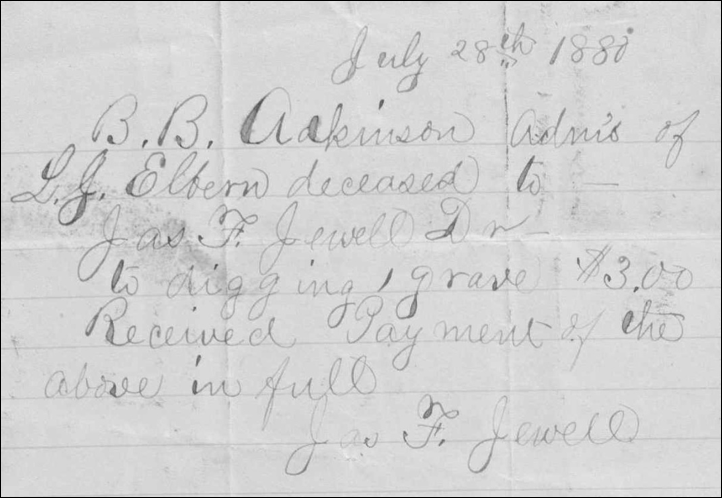 July 28th 1880
B. B. Adkinson Adm's of
L. J. Elbern deceased to —
Jas F. Jewell Dr —
to digging 1 grave $3.00
Received Payment of the
above in full
Jas F. Jewell